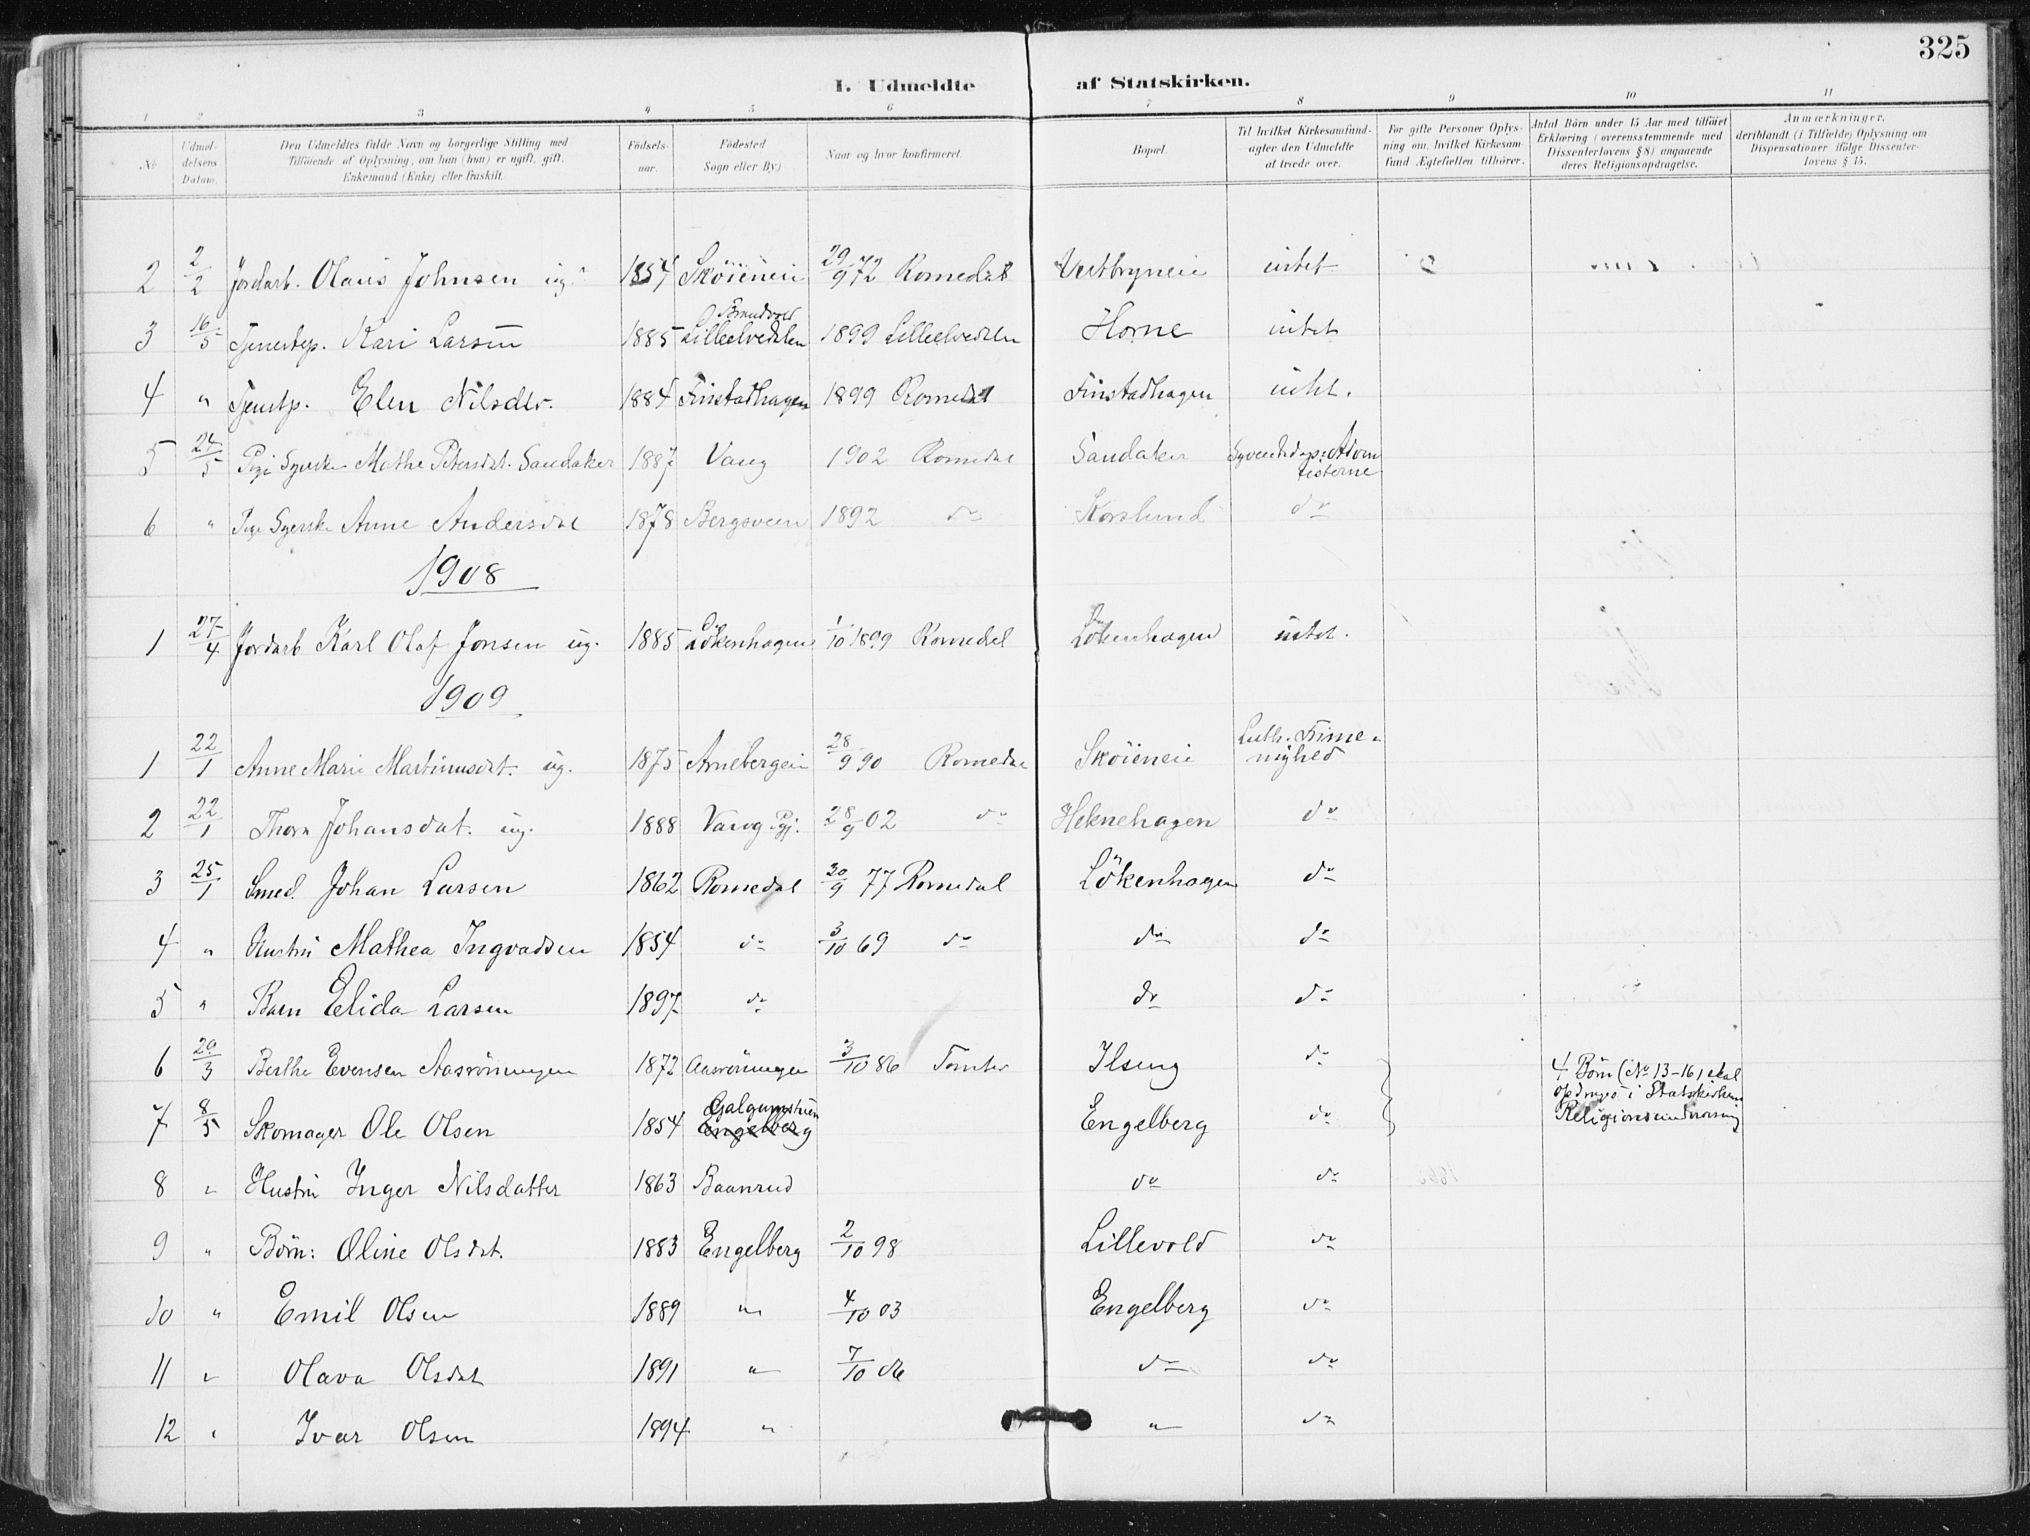 325
I. Udmeldte af Statskirken.
1 2 3 4 5 6 7 8 9 10 11
No
Udmel-
delsens
Datum.
Den Udmeldtes fulde Navn og borgerlige Stilling med
Tilføiende af Oplysning, om han (hun) er ugift, gift,
Enkemand (Enke) eller fraskilt.
Fødsels-
aar.
Fødested
Sogn eller By)
Naar og hvor konfirmeret.
Bopæl.
Til hvilket Kirkesamfund
agter den Udmeldte
at træde over.
For gifte Personer Oplys-
ning om, hvilket Kirkesam-
fund Ægtefællen tilhører.
Antal Börn under 15 Aar med tilføiet
Erklæring (overensstemmende med
Dissenterlovens § 8) angaaende
deres Religionsopdragelse.
Anmærkninger,
deriblandt (i Tilfælde) Oplysning om
Dispensationer ifølge Dissenter-
lovens § 15.
2 2/2 Jordarb. Olaus Johnsen ug. 1854 Skøieneie 29/9 72 Romedal Vestbryneie intet
3 16/5 Tjenestep. Kari Larsen 1885 Lilleelvedalen 1899 Lilleelvedalen Horne intet
4 " Tjenstp. Elen Nilsdtr. 1884 Finstadhagen 1899 Romedal Finstadhagen intet.
5 24/5 Pige Syerske Mathe Petersdt. Sandaker 1887 Vang 1902 Romedal Sandaker Syvendedags Adven
tisterne
6 " Pige Syerske Anne Andersdat 1878 Bergsveen 1892 do Korslund do
1908
1 27/4 Jordarb Karl Olaf Jonsen ug. 1885 Lökenhagen 1/10 1899 Romedal Lökenhagen intet.
1909
1 22/1 Anne Marie Martinusdat. ug. 1875 Arnebergeie 28/9 90 Romedal Skøieneie Luth. Frime-
nighed
2 22/1 Thora Johansdat. ug. 1888 Vang Pgj. 28/9 02 do Heknehagen do
3 25/1 Smed Johan Larsen 1862 Romedal 30/9 77 Romedal Lökenhagen do
4 " Hustru Mathea Ingvadsen 1854 do 3/10 69 do do do
5 " Barn Elida Larsen 1897 do do do
6 29/3 Berthe Evensen Aasröningen 1872 Aasröningen 3/10 86 Tomter Ilseng do 4 Börn (No 13-16) skal
opdrages i Statskirkens
Religionsundervisning
7 8/5 Skomager Ole Olsen 1854 Engelberg Engelberg do
8 " Hustru Inger Nilsdatter 1863 Baanrud do do
9 " Börn: Oline Olsdat. 1883 Engelberg 2/10 98 Lillevold do
10 " Emil Olsen 1889 " 4/10 03 Engelberg do
11 " Olava Olsdat 1891 " 7/10 06 do do
12 " Ivar Olsen 1894 " " do